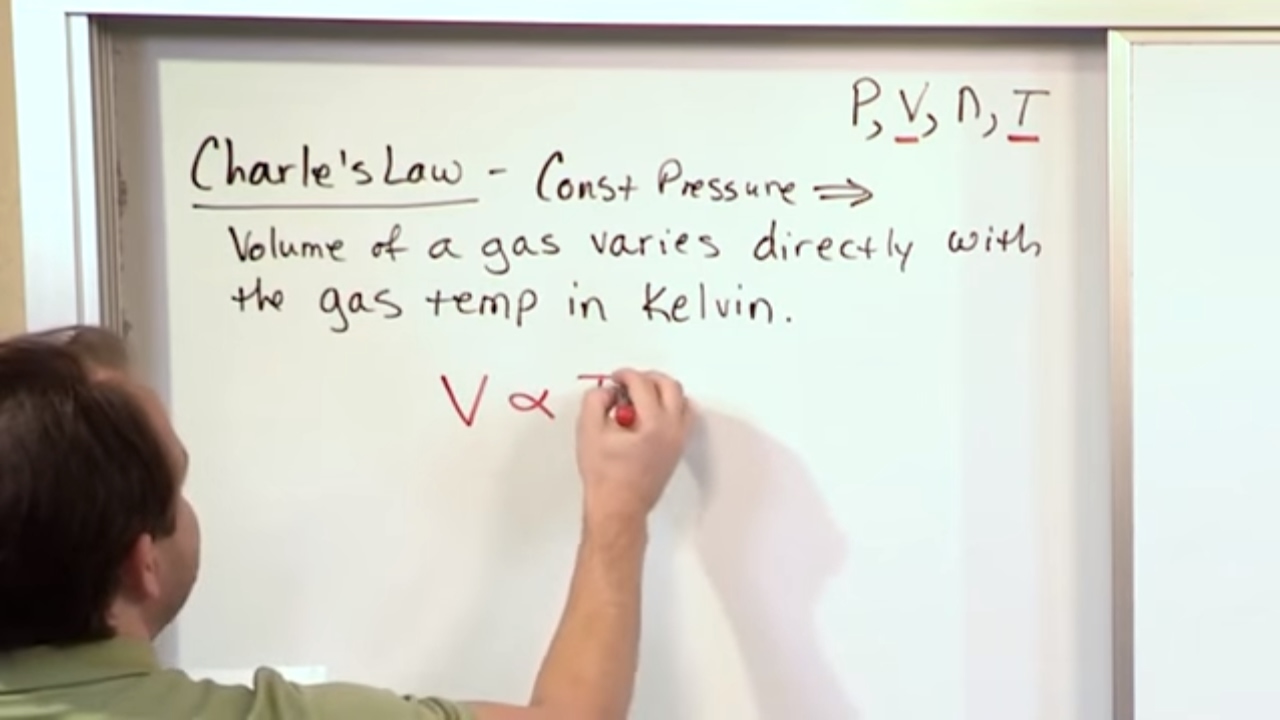 P, V, n, T
Charle's Law - Const Pressure ⇒
Volume of a gas varies directly with
the gas temp in Kelvin.
V ∝ T